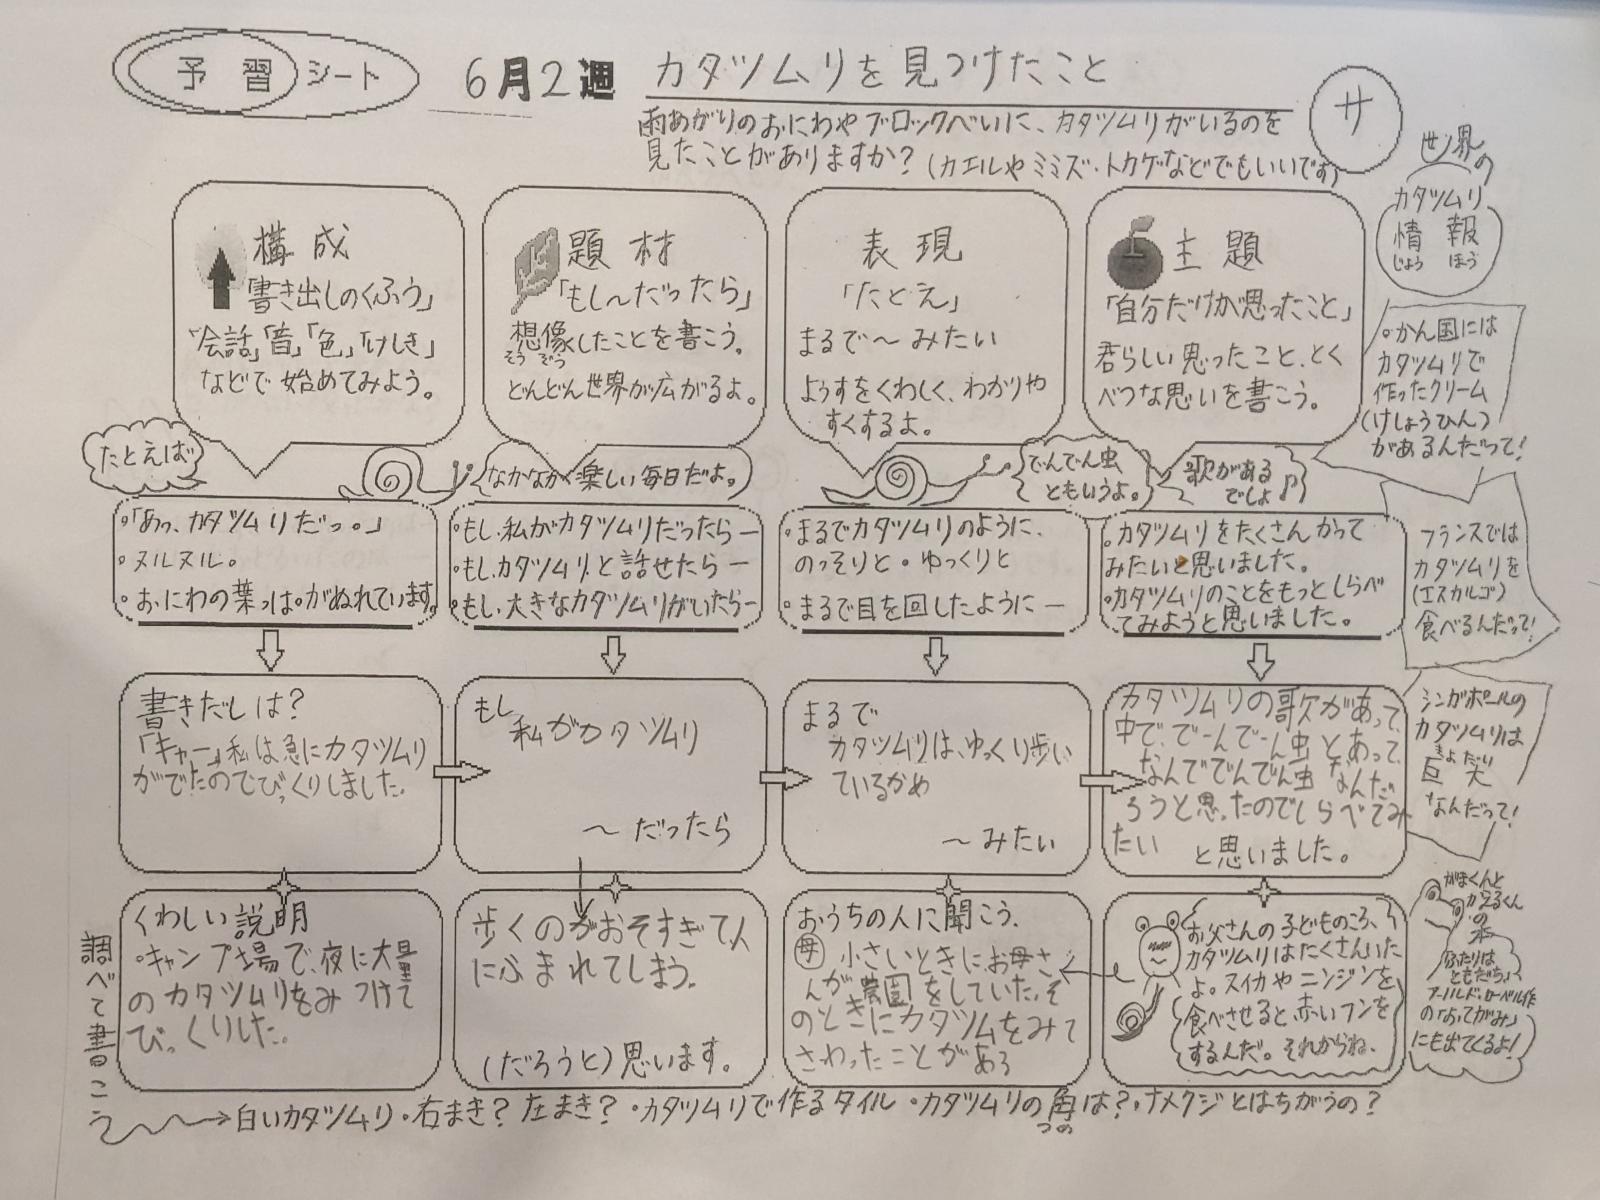 予習シート
6月2週
カタツムリを見つけたこと
サ
雨あがりのおにわやブロックべいに、カタツムリがいるのを
見たことがありますか?(カエルやミミズ・トカゲなどでもいいです)
構成
「書き出しのくふう」
「会話」「音」「色」「けしき」
などで始めてみよう。
題材
「もし〜だったら」
想像したことを書こう。
そうぞう
どんどん世界が広がるよ。
表現
「たとえ」
まるで〜みたい
ようすをくわしく、わかりや
すくするよ。
主題
「自分だけが思ったこと」
君らしい思ったこと、とく
べつな思いを書こう。
世界の
カタツムリ
情報
じょうほう
。かん国には
カタツムリで
作ったクリーム
(けしょうひん)
があるんだって!
フランスでは
カタツムリを
(エスカルゴ)
食べるんだって!
シンガポールの
カタツムリは
きょだい
巨大
なんだって!
たとえば
なかなか楽しい毎日だよ。
でんでん虫
ともいうよ。
歌がある
でしょ♪
・「あっ、カタツムリだっ。」
・ヌルヌル。
・おにわの葉っぱがぬれています。
・もし、私がカタツムリだったら—
・もし、カタツムリと話せたら—
・もし、大きなカタツムリがいたら—
・まるでカタツムリのように、
のっそりと・ゆっくりと
・まるで目を回したように—
・カタツムリをたくさんかって
みたいと思いました。
・カタツムリのことをもっとしらべ
てみようと思いました。
書きだしは?
「キャー」私は急にカタツムリ
がでたのでびっくりしました。
もし
私がカタツムリ
〜だったら
まるで
カタツムリは、ゆっくり歩い
ているかめ
〜みたい
カタツムリの歌があって、
中で、でーんでーん虫とあって、
なんででんでん虫なんだ
ろうと思ったのでしらべてみ
たい と思いました。
くわしい説明
・キャンプ場で、夜に大量
のカタツムリをみつけて
びっくりした。
歩くのがおそすぎて人
にふまれてしまう。
(だろうと)思います。
おうちの人に聞こう。
母 小さいときにお母さ
んが農園をしていた。そ
のときにカタツムをみて
さわったことがある
お父さんの子どものころ、
カタツムリはたくさんいた
よ。スイカやニンジンを
食べさせると赤いフンを
するんだ。それからね、
がまくんと
かえるくん
の本
「ふたりは
ともだち」
アーノルド・ローベル作
の「おてがみ」
にも出てくるよ!
調べて書こう
白いカタツムリ・右まき?左まき?・カタツムリで作るタイル・カタツムリの角は?・ナメクジとはちがうの?
つの